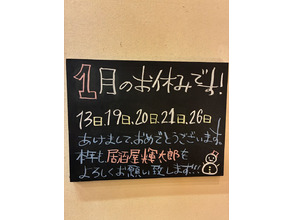 1月のお休みです!
13日、19日、20日、21日、26日
あけまして、おめでとうございます。
本年も居酒屋輝太郎を
よろしくお願い致します!!